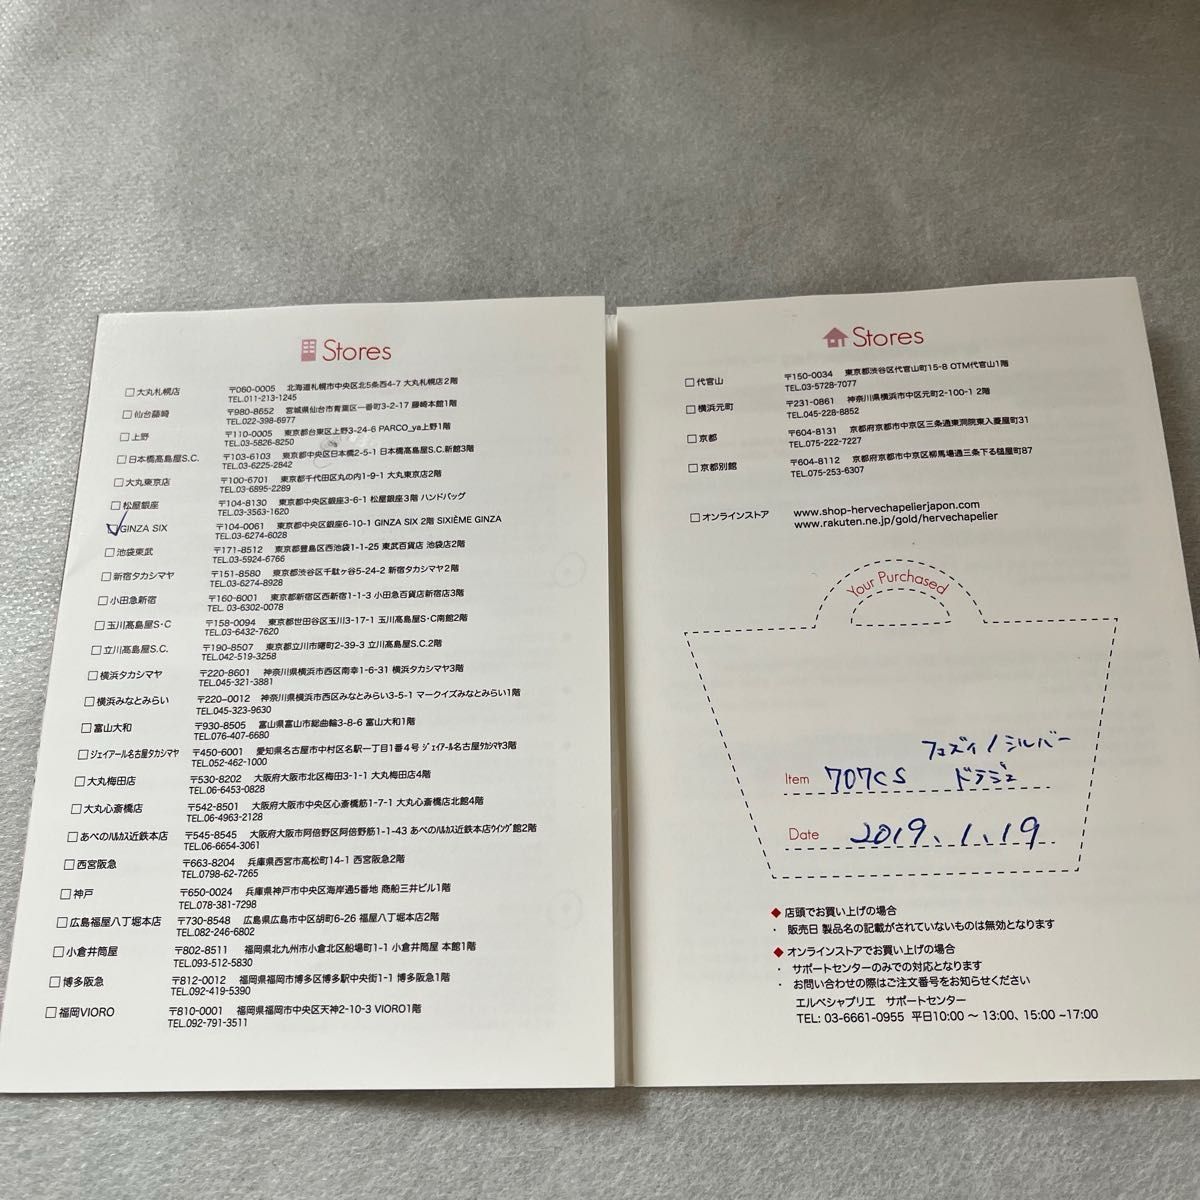 Stores
大丸札幌店 〒060-0005 北海道札幌市中央区北5条西4-7 大丸札幌店2階
TEL.011-213-1245
仙台藤崎 〒980-8652 宮城県仙台市青葉区一番町3-2-17 藤崎本館1階
TEL.022-398-6977
上野 〒110-0005 東京都台東区上野3-24-6 PARCO_ya上野1階
TEL.03-5826-8250
日本橋髙島屋S.C. 〒103-6103 東京都中央区日本橋2-5-1 日本橋髙島屋S.C.新館3階
TEL.03-6225-2842
大丸東京店 〒100-6701 東京都千代田区丸の内1-9-1 大丸東京店2階
TEL.03-6895-2289
松屋銀座 〒104-8130 東京都中央区銀座3-6-1 松屋銀座3階 ハンドバッグ
TEL.03-3563-1620
GINZA SIX 〒104-0061 東京都中央区銀座6-10-1 GINZA SIX 2階 SIXIÈME GINZA
TEL.03-6274-6028
池袋東武 〒171-8512 東京都豊島区西池袋1-1-25 東武百貨店 池袋店2階
TEL.03-5924-6766
新宿タカシマヤ 〒151-8580 東京都渋谷区千駄ヶ谷5-24-2 新宿タカシマヤ2階
TEL.03-6274-8928
小田急新宿 〒160-8001 東京都新宿区西新宿1-1-3 小田急百貨店新宿店3階
TEL. 03-6302-0078
玉川髙島屋S・C 〒158-0094 東京都世田谷区玉川3-17-1 玉川髙島屋S・C南館2階
TEL.03-6432-7620
立川髙島屋S.C. 〒190-8507 東京都立川市曙町2-39-3 立川髙島屋S.C.2階
TEL.042-519-3258
横浜タカシマヤ 〒220-8601 神奈川県横浜市西区南幸1-6-31 横浜タカシマヤ3階
TEL.045-321-3881
横浜みなとみらい 〒220-0012 神奈川県横浜市西区みなとみらい3-5-1 マークイズみなとみらい1階
TEL.045-323-9630
富山大和 〒930-8505 富山県富山市総曲輪3-8-6 富山大和1階
TEL.076-407-6680
ジェイアール名古屋タカシマヤ 〒450-6001 愛知県名古屋市中村区名駅一丁目1番4号 ジェイアール名古屋タカシマヤ3階
TEL.052-462-1000
大丸梅田店 〒530-8202 大阪府大阪市北区梅田3-1-1 大丸梅田店4階
TEL.06-6453-0828
大丸心斎橋店 〒542-8501 大阪府大阪市中央区心斎橋筋1-7-1 大丸心斎橋店北館4階
TEL.06-4963-2128
あべのハルカス近鉄本店 〒545-8545 大阪府大阪市阿倍野区阿倍野筋1-1-43 あべのハルカス近鉄本店ウイング館2階
TEL.06-6654-3061
西宮阪急 〒663-8204 兵庫県西宮市高松町14-1 西宮阪急2階
TEL.0798-62-7265
神戸 〒650-0024 兵庫県神戸市中央区海岸通5番地 商船三井ビル1階
TEL.078-381-7298
広島福屋八丁堀本店 〒730-8548 広島県広島市中区胡町6-26 福屋八丁堀本店2階
TEL.082-246-6802
小倉井筒屋 〒802-8511 福岡県北九州市小倉北区船場町1-1 小倉井筒屋 本館1階
TEL.093-512-5830
博多阪急 〒812-0012 福岡県福岡市博多区博多駅中央街1-1 博多阪急1階
TEL.092-419-5390
福岡VIORO 〒810-0001 福岡県福岡市中央区天神2-10-3 VIORO1階
TEL.092-791-3511
Stores
代官山 〒150-0034 東京都渋谷区代官山町15-8 OTM代官山1階
TEL.03-5728-7077
横浜元町 〒231-0861 神奈川県横浜市中区元町2-100-1 2階
TEL.045-228-8852
京都 〒604-8131 京都府京都市中京区三条通東洞院東入菱屋町31
TEL.075-222-7227
京都別館 〒604-8112 京都府京都市中京区柳馬場通三条下る槌屋町87
TEL.075-253-6307
オンラインストア www.shop-hervechapelierjapon.com
www.rakuten.ne.jp/gold/hervechapelier
Your Purchased
フュズィ/シルバー
Item 707CS ドラジェ
Date 2019.1.19
◆ 店頭でお買い上げの場合
・ 販売日 製品名の記載がされていないものは無効となります
◆ オンラインストアでお買い上げの場合
・ サポートセンターのみでの対応となります
・ お問い合わせの際はご注文番号をお知らせください
エルベシャプリエ サポートセンター
TEL: 03-6661-0955 平日10:00 ～ 13:00、15:00 ~17:00